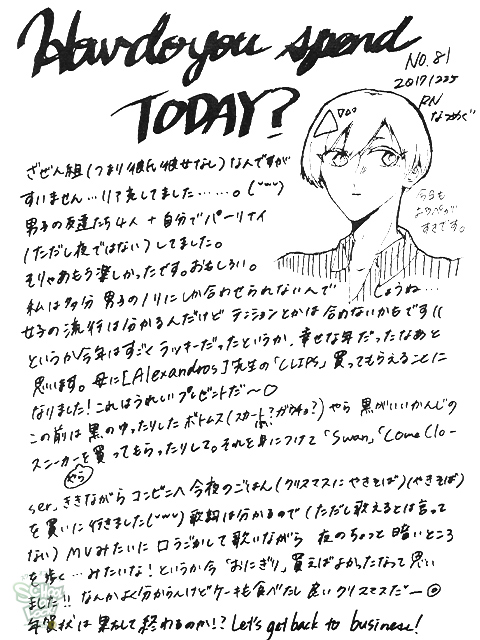 How do you spend
TODAY?
No.81
2017/12/25
RN
なつめぐ
今日も
ようぺが
すきです。
ざぜん組(つまり彼氏彼女なし)なんですが
すいません…リア充してました……。(˘ω˘)
男子の友達たち4人+自分でパーリナイ
(ただし夜ではない)してました。
そりゃあもう楽しかったです。おもしろい。
私は多分男子のノリにしか合わせられないんでしょうね…
女子の流行は分かるんだけどテンションとかは合わないかもです!(
というか今年はすごくラッキーだったというか、幸せな年だったなあと
思います。母に[Alexandros]先生の「CLIPS」買ってもらえることに
なりました!これはうれしいプレゼントだ〜♡
この前は黒のゆったりしたボトムス(スカート?ガウチョ?)やら黒がいいかんじの
スニーカーを買ってもらったりして。それを身につけて「Swan」「Come Clo-
やら
ser」ききながらコンビニへ今夜のごはん(クリスマスにやきそば)(やきそば)
を買いに行きました(˘ω˘)歌詞は分かるので(ただし歌えるとは言って
ない)MVみたいに口うごかして歌いながら夜のちょっと暗いところ
を歩く…みたいな!というか今「おにぎり」買えばよかったなって思い
ました!!なんかよく分からんけどケーキも食べたし良いクリスマスだー◎
年賀状は果たして終わるのか!?Let's get back to business!